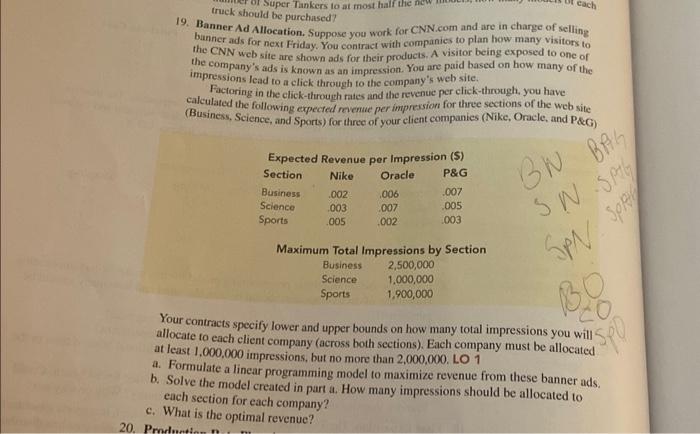 of Super Tankers to at most half the new
of each
truck should be purchased?
19. Banner Ad Allocation. Suppose you work for CNN.com and are in charge of selling
banner ads for next Friday. You contract with companies to plan how many visitors to
the CNN web site are shown ads for their products. A visitor being exposed to one of
the company's ads is known as an impression. You are paid based on how many of the
impressions lead to a click through to the company's web site.
Factoring in the click-through rates and the revenue per click-through, you have
calculated the following expected revenue per impression for three sections of the web site
(Business, Science, and Sports) for three of your client companies (Nike, Oracle, and P&G)
Expected Revenue per Impression ($)
Section Nike Oracle P&G
Business .002 .006 .007
Science .003 .007 .005
Sports .005 .002 .003
BN
SN
SPN
BO
SPO
Maximum Total Impressions by Section
Business 2,500,000
Science 1,000,000
Sports 1,900,000
Your contracts specify lower and upper bounds on how many total impressions you will
allocate to each client company (across both sections). Each company must be allocated
at least 1,000,000 impressions, but no more than 2,000,000. LO 1
a. Formulate a linear programming model to maximize revenue from these banner ads.
b. Solve the model created in part a. How many impressions should be allocated to
each section for each company?
c. What is the optimal revenue?
20.